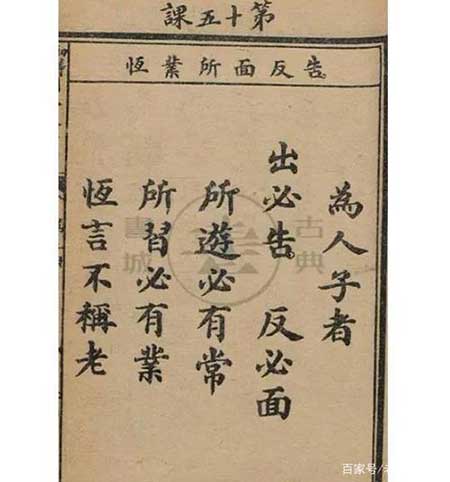 第十五課
告反面所業恆
為人子者
出必告 反必面
所遊必有常
所習必有業
恆言不稱老
古典書城
百家号